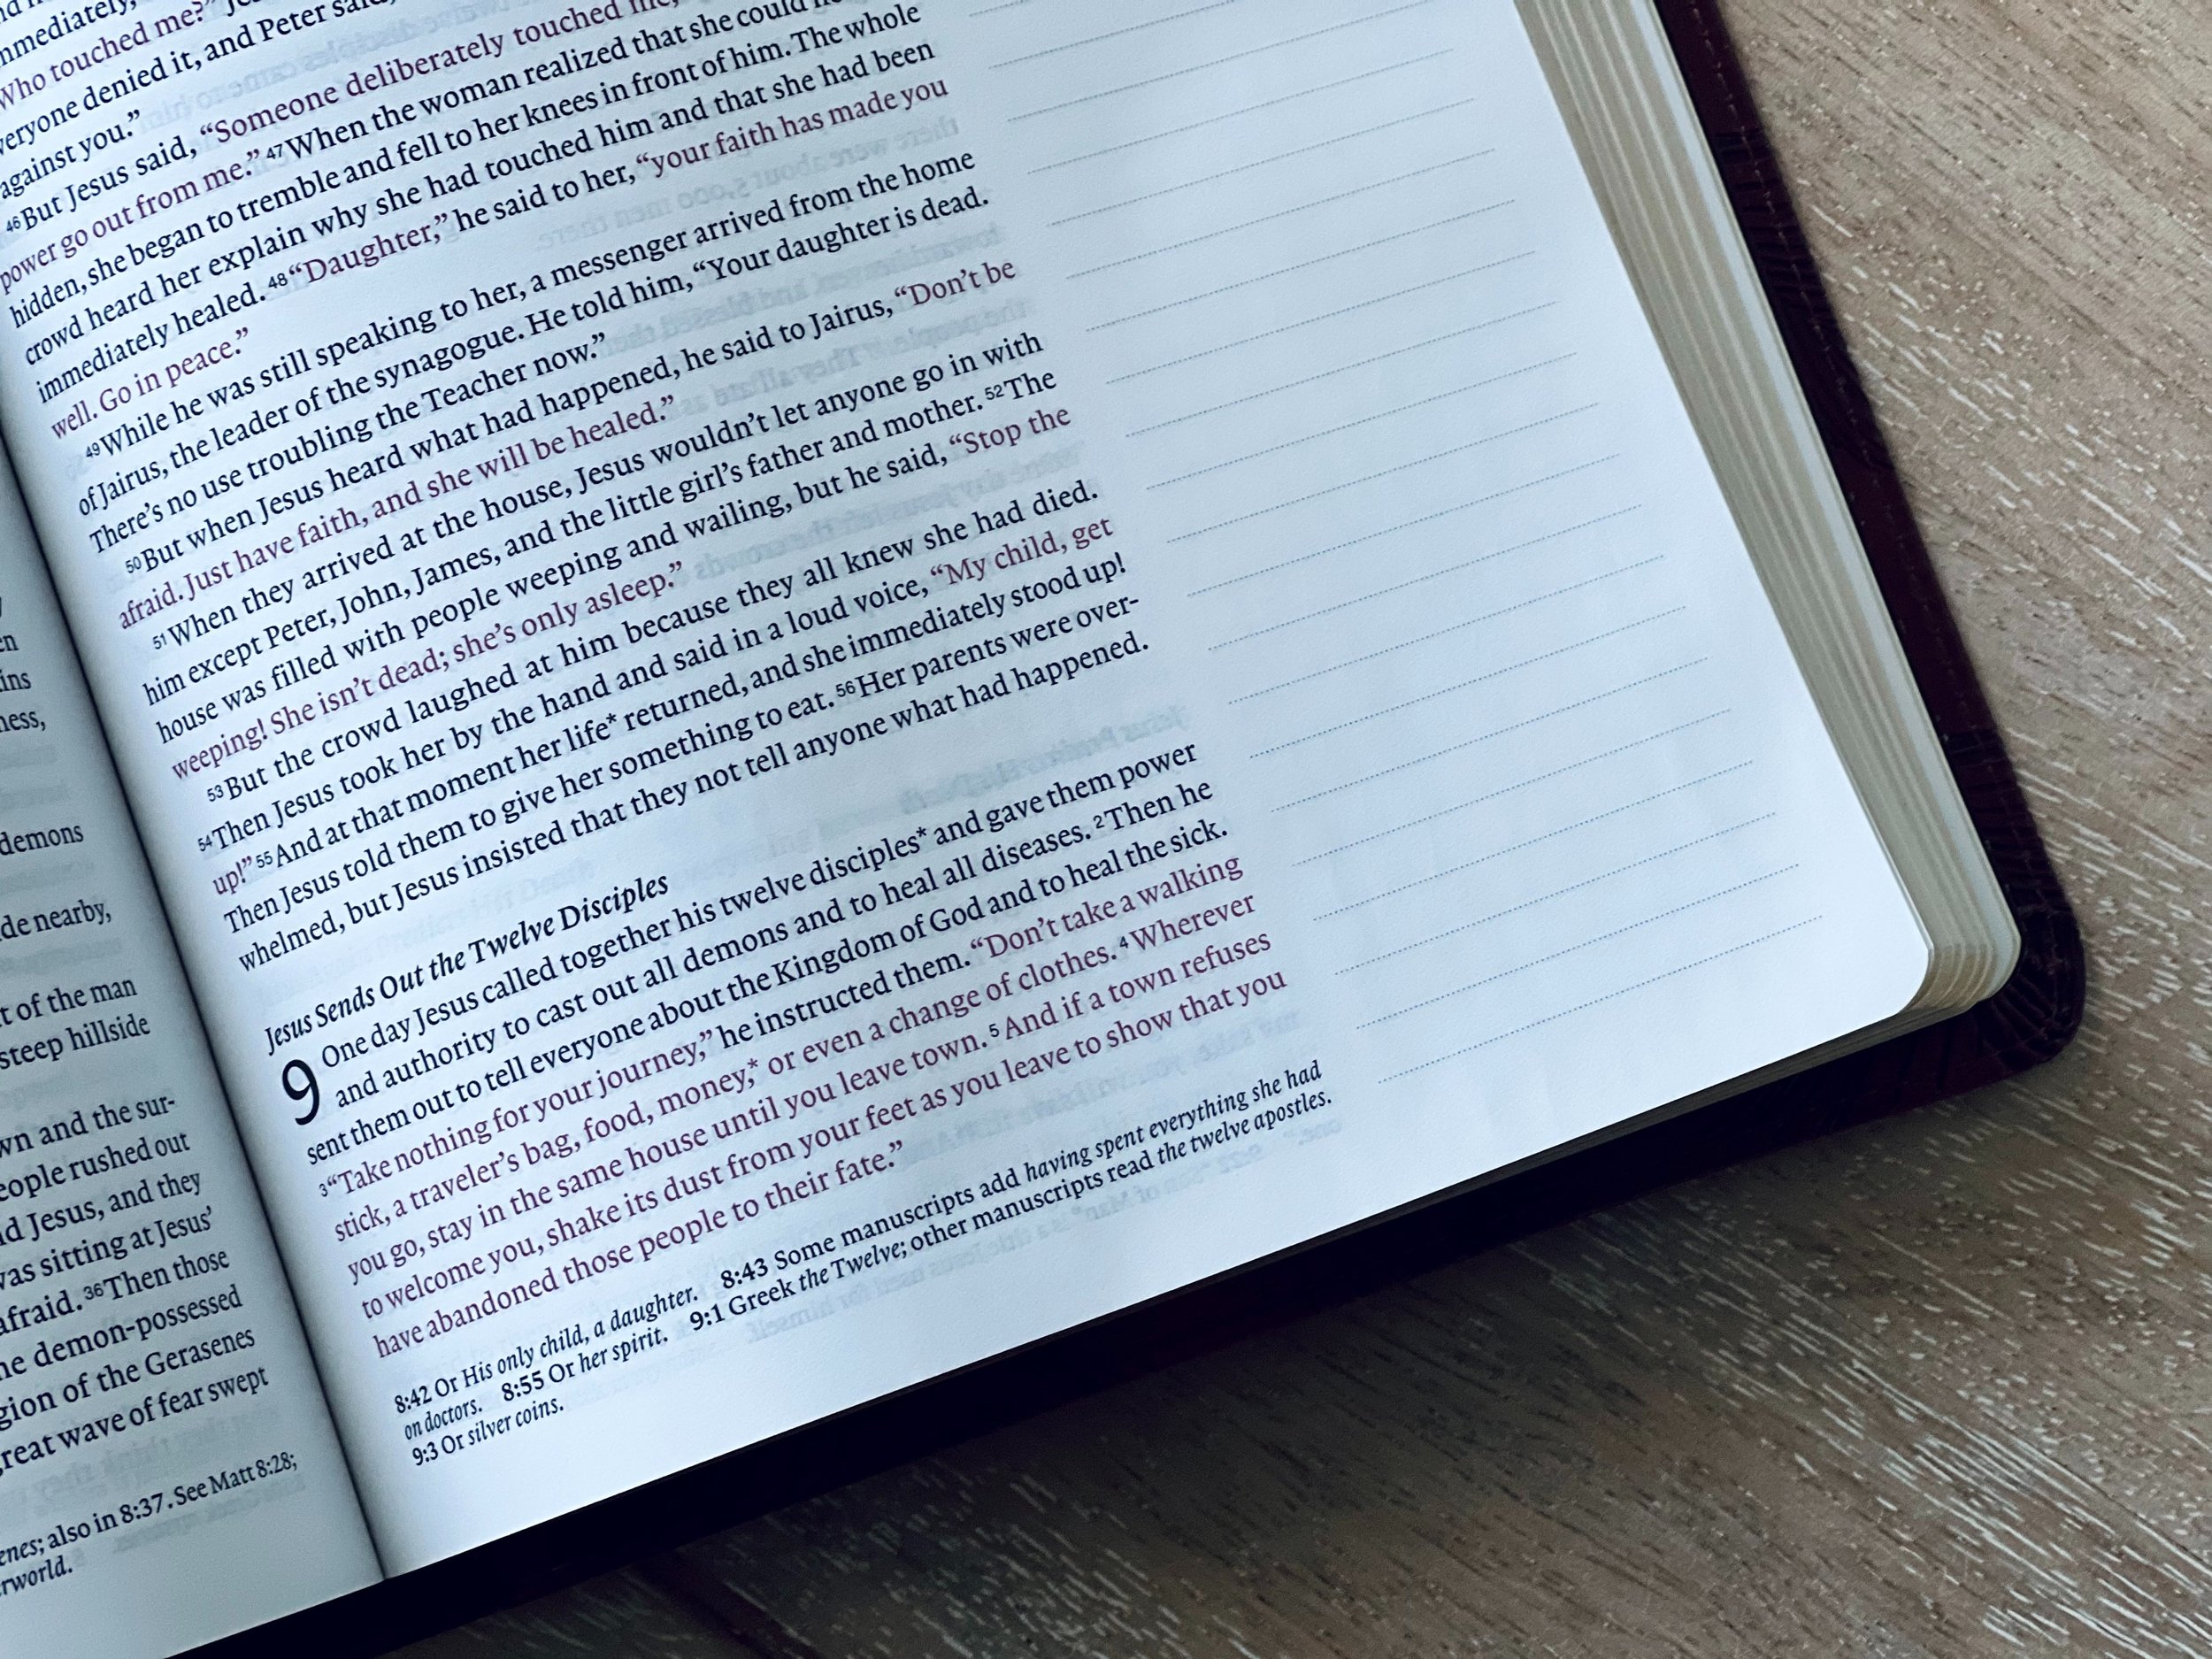 demons
de nearby,
t of the man
steep hillside
wn and the sur-
eople rushed out
d Jesus, and they
was sitting at Jesus’
afraid. 36Then those
he demon-possessed
gion of the Gerasenes
great wave of fear swept
enes; also in 8:37. See Matt 8:28;
rworld.
mmediately,
Who touched me?”
veryone denied it, and Peter said,
against you.”
46But Jesus said, “Someone deliberately touched me,
power go out from me.” 47When the woman realized that she could
hidden, she began to tremble and fell to her knees in front of him. The whole
crowd heard her explain why she had touched him and that she had been
immediately healed. 48“Daughter,” he said to her, “your faith has made you
well. Go in peace.”
49While he was still speaking to her, a messenger arrived from the home
of Jairus, the leader of the synagogue. He told him, “Your daughter is dead.
There’s no use troubling the Teacher now.”
50But when Jesus heard what had happened, he said to Jairus, “Don’t be
afraid. Just have faith, and she will be healed.”
51When they arrived at the house, Jesus wouldn’t let anyone go in with
him except Peter, John, James, and the little girl’s father and mother. 52The
house was filled with people weeping and wailing, but he said, “Stop the
weeping! She isn’t dead; she’s only asleep.”
53But the crowd laughed at him because they all knew she had died.
54Then Jesus took her by the hand and said in a loud voice, “My child, get
up!” 55And at that moment her life* returned, and she immediately stood up!
Then Jesus told them to give her something to eat. 56Her parents were over-
whelmed, but Jesus insisted that they not tell anyone what had happened.
Jesus Sends Out the Twelve Disciples
9 One day Jesus called together his twelve disciples* and gave them power
and authority to cast out all demons and to heal all diseases. 2Then he
sent them out to tell everyone about the Kingdom of God and to heal the sick.
3“Take nothing for your journey,” he instructed them. “Don’t take a walking
stick, a traveler’s bag, food, money,* or even a change of clothes. 4Wherever
you go, stay in the same house until you leave town. 5And if a town refuses
to welcome you, shake its dust from your feet as you leave to show that you
have abandoned those people to their fate.”
8:42 Or His only child, a daughter. 8:43 Some manuscripts add having spent everything she had
on doctors. 8:55 Or her spirit. 9:1 Greek the Twelve; other manuscripts read the twelve apostles.
9:3 Or silver coins.